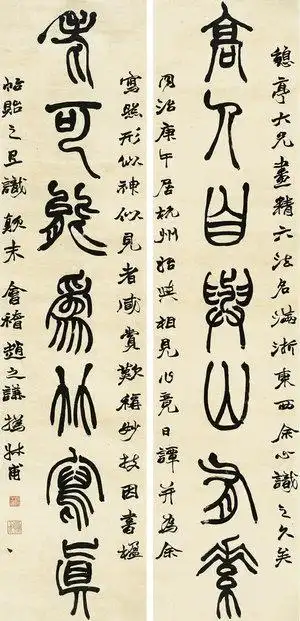 憩亭大兄畫精六法名滿浙東西余心識之久矣
高人自與山有素
同治庚午居杭州始與相見必竟日譚并為余
寫照形似神似見者咸賞歎稱妙技因書楹
老可能為竹寫真
帖貽之且識顛末會稽趙之謙撝叔甫